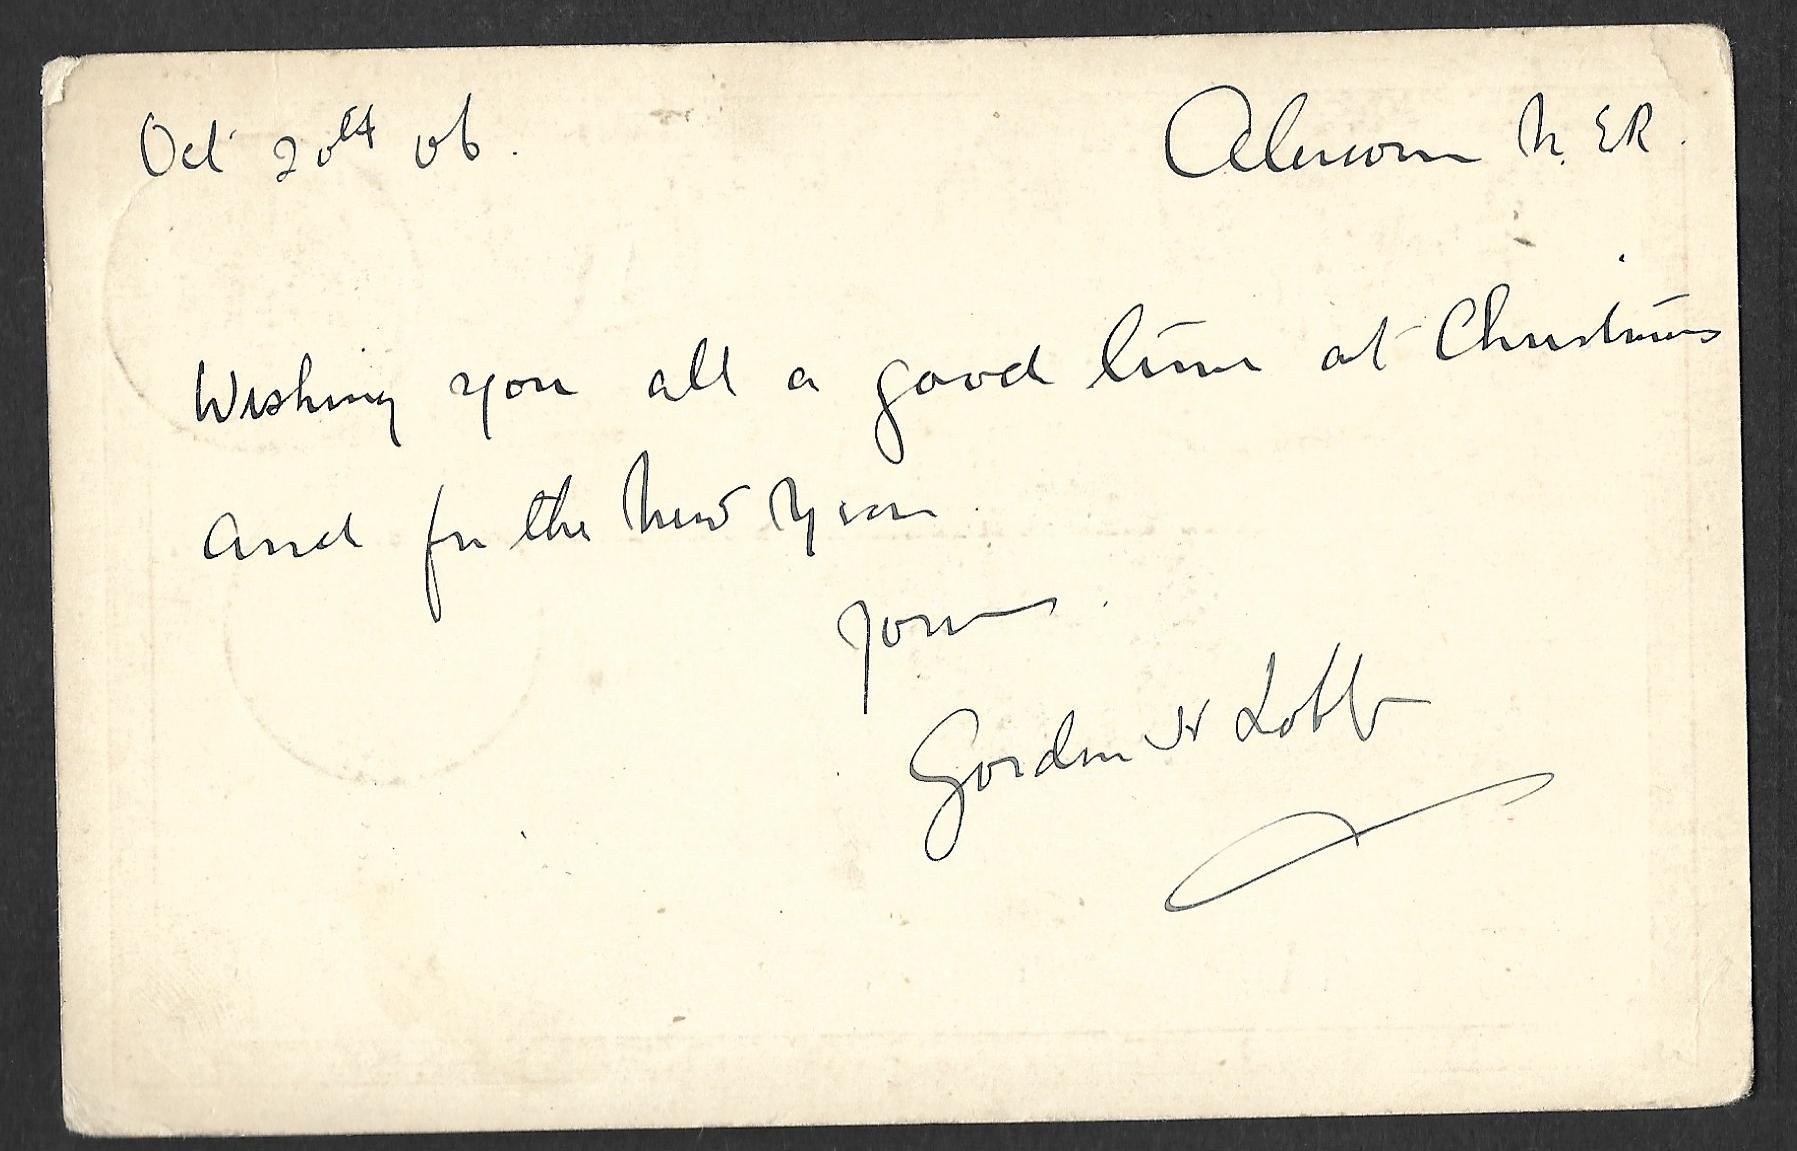 Oct 20th 06. N. ER.
Wishing you all a good time at Christmas
and for the New Year.
Yours.
Gordon H Lobb